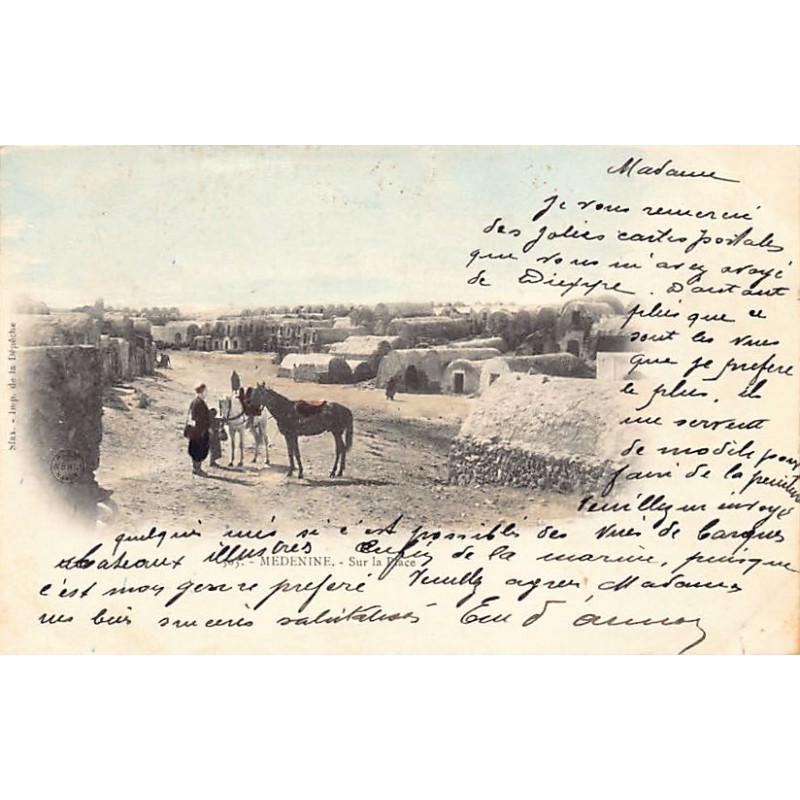 Madame
Je vous remercie
des jolies cartes postales
que vous m'avez envoyé
de Dieppe. D'autant
plus que ce
sont les vues
que je prefere
le plus, il
me servent
de modèle pour
faire de la peinture
Veuillez m'envoyé
quelques unes si c'est possible des vues de barques
bateaux illustres enfin de la marine, puisque
c'est mon genre preferé Veuillez agreer Madame
mes bien sincères salutations Em d'
Sfax. - Imp. de la Dépêche
MEDENINE. - Sur la Place